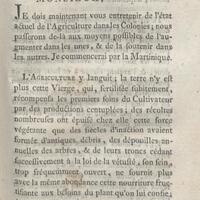 MONSIEUR,
JE dois maintenant vous entretenir de l'état
actuel de l'Agriculture dans les Colonies; nous
passerons de-là aux moyens possibles de l'au-
gmenter dans les unes, & de la soutenir dans
les autres. Je commencerai par la Martinique.
L'AGRICULTURE y languit; la terre n'y est
plus cette Vierge, qui, fertilisée subitement,
récompensa les premiers soins du Cultivateur
par des productions centuplées; des récoltes
nombreuses ont épuisé chez elle cette force
végétante que des siècles d'inaction avaient
formée d'antiques débris, des dépouilles an-
nuelles des arbres, & de leurs troncs cédant
successivement à la loi de la vétusté, son sein,
trop fréquemment ouvert, ne fournit plus
avec la même abondance cette nourriture fruc-
tifiante aux besoins du plant qu'on lui confie;